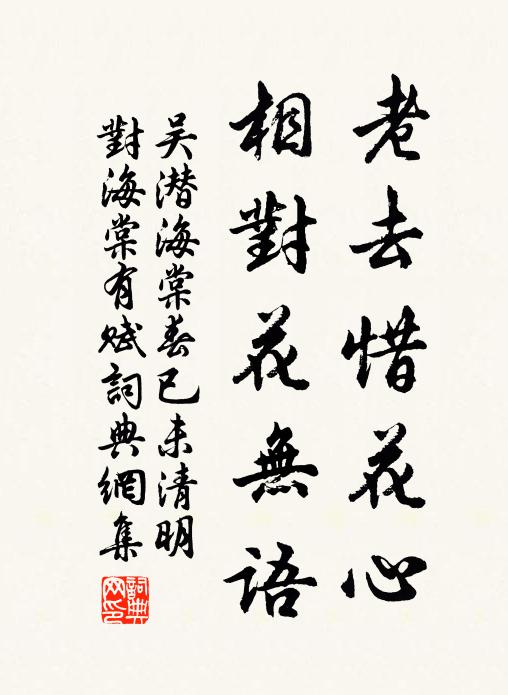 老去惜花心
相對花無語
吴潜海棠春己未清明
對海棠有賦詞典網集
詞典
网印